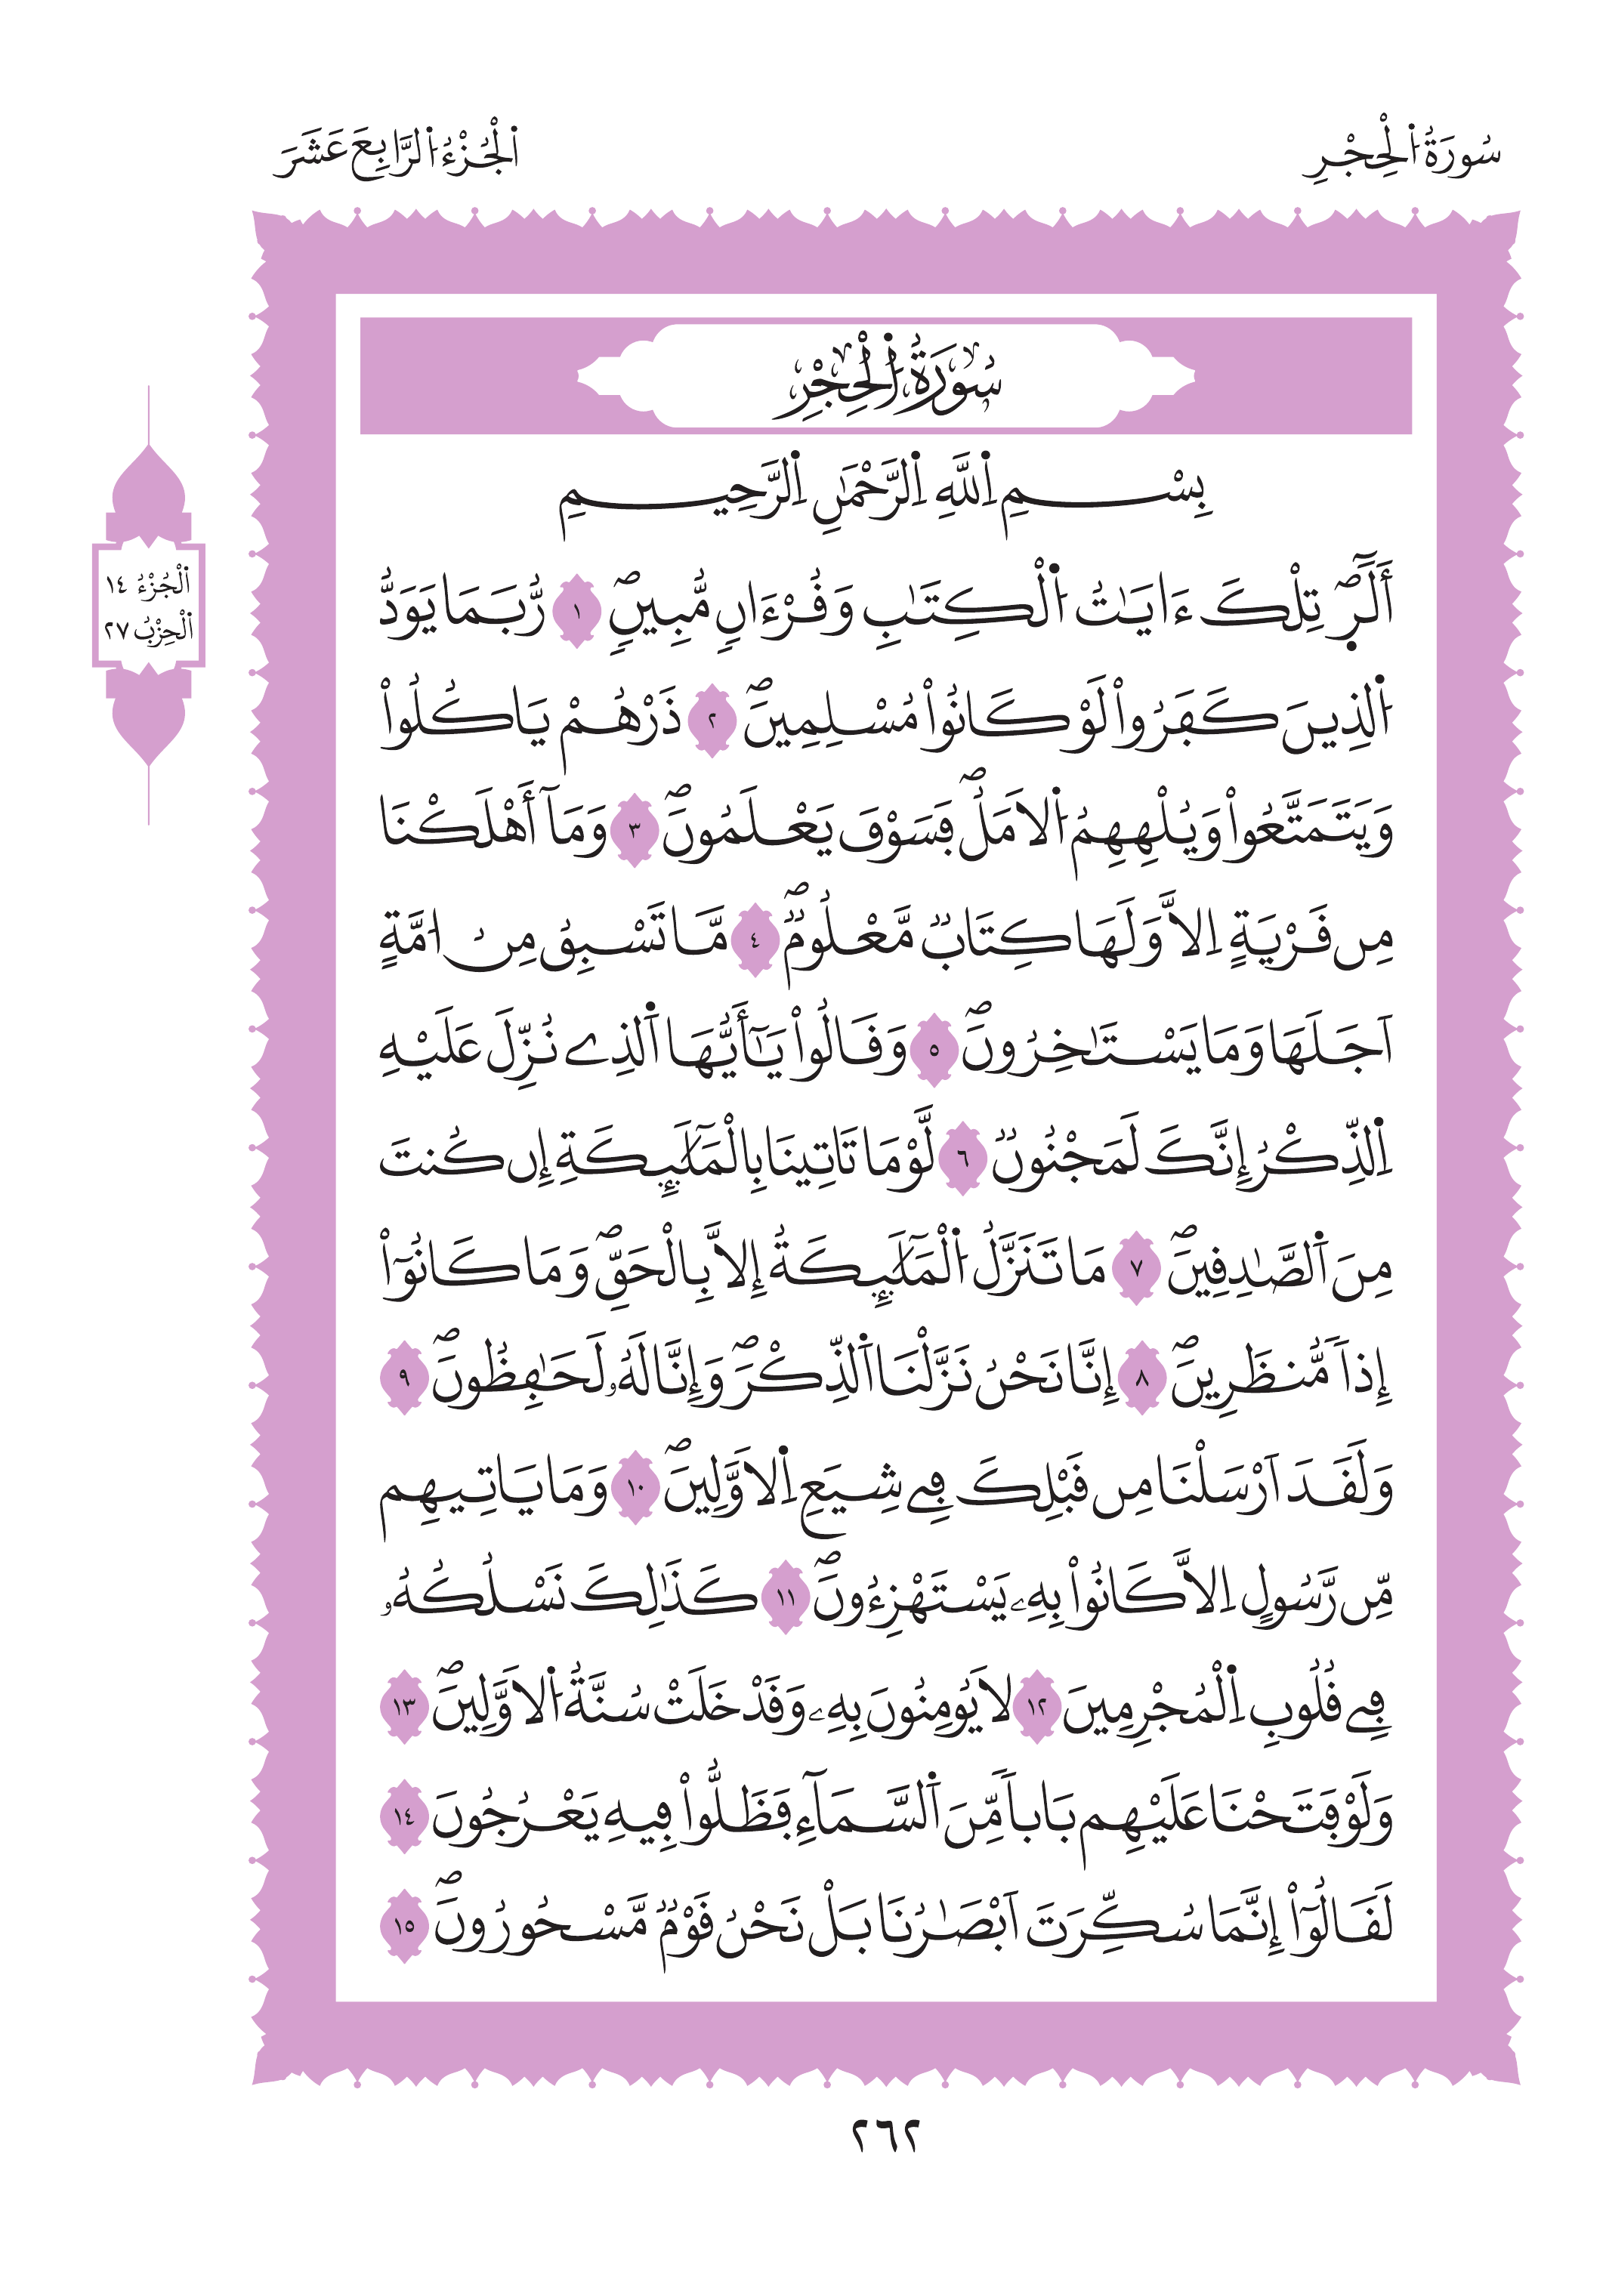 سُورَةُ اُ۬لْحِجْرِ
اَ۬لْجُزْءُ اُ۬لرَّابِعَ عَشَرَ
سُورَةُ اُ۬لْحِجْرِ
بِسْمِ اِ۬للَّهِ اِ۬لرَّحْمَٰنِ اِ۬لرَّحِيمِ
أَلَٓرٜۖ تِلْكَ ءَايَٰتُ اُ۬لْكِتَٰبِ وَقُرْءَانٖ مُّبِينٖۖ ١ رُّبَمَا يَوَدُّ
اُ۬لذِينَ كَفَرُواْ لَوْ كَانُواْ مُسْلِمِينَۖ ٢ ذَرْهُمْ يَاكُلُواْ
وَيَتَمَتَّعُواْ وَيُلْهِهِمُ اُ۬لَامَلُۖ فَسَوْفَ يَعْلَمُونَۖ ٣ وَمَآ أَهْلَكْنَا
مِن قَرْيَةٍ اِلَّا وَلَهَا كِتَابٞ مَّعْلُومٞۖ ٤ مَّا تَسْبِقُ مِنُ ا۟مَّةٍ
اَجَلَهَا وَمَا يَسْتَٰخِرُونَۖ ٥ وَقَالُواْ يَٰٓأَيُّهَا اَ۬لذِے نُزِّلَ عَلَيْهِ
اِ۬لذِّكْرُ إِنَّكَ لَمَجْنُونٞ ٦ لَّوْ مَا تَاتِينَا بِالْمَلَٰٓئِكَةِ إِن كُنتَ
مِنَ اَ۬لصَّٰدِقِينَۖ ٧ مَا تَنَزَّلُ اُ۬لْمَلَٰٓئِكَةُ إِلَّا بِالْحَقِّۖ وَمَا كَانُوٓاْ
إِذاٗ مُّنظَرِينَۖ ٨ إِنَّا نَحْنُ نَزَّلْنَا اَ۬لذِّكْرَۖ وَإِنَّا لَهُۥ لَحَٰفِظُونَۖ ٩
وَلَقَدَ اَرْسَلْنَا مِن قَبْلِكَ فِے شِيَعِ اِ۬لَاوَّلِينَۖ ١٠ وَمَا يَاتِيهِم
مِّن رَّسُولٍ اِلَّا كَانُواْ بِهِۦ يَسْتَهْزِءُونَۖ ١١ كَذَٰلِكَ نَسْلُكُهُۥ
فِے قُلُوبِ اِ۬لْمُجْرِمِينَ ١٢ لَا يُومِنُونَ بِهِۦ وَقَدْ خَلَتْ سُنَّةُ اُ۬لَاوَّلِينَۖ ١٣
وَلَوْ فَتَحْنَا عَلَيْهِم بَاباٗ مِّنَ اَ۬لسَّمَآءِ فَظَلُّواْ فِيهِ يَعْرُجُونَ ١٤
لَقَالُوٓاْ إِنَّمَا سُكِّرَتَ اَبْصَٰرُنَا بَلْ نَحْنُ قَوْمٞ مَّسْحُورُونَۖ ١٥
اَ۬لْجُزْءُ ١٤
اَ۬لْحِزْبُ ٢٧
٢٦٢